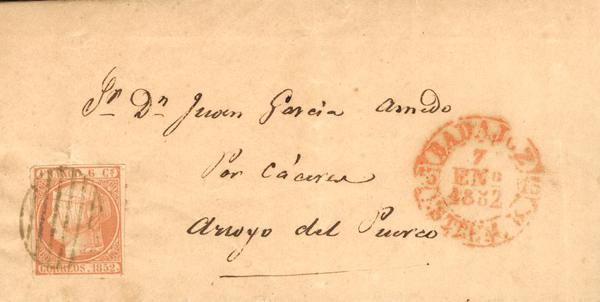 Sr. Dn. Juan Garcia Amedo
Por Cáceres
Arroyo del Puerco
6 Cs.
CORREOS. 1852.
BADAJOZ
7
ENO
1852
ESTREM.